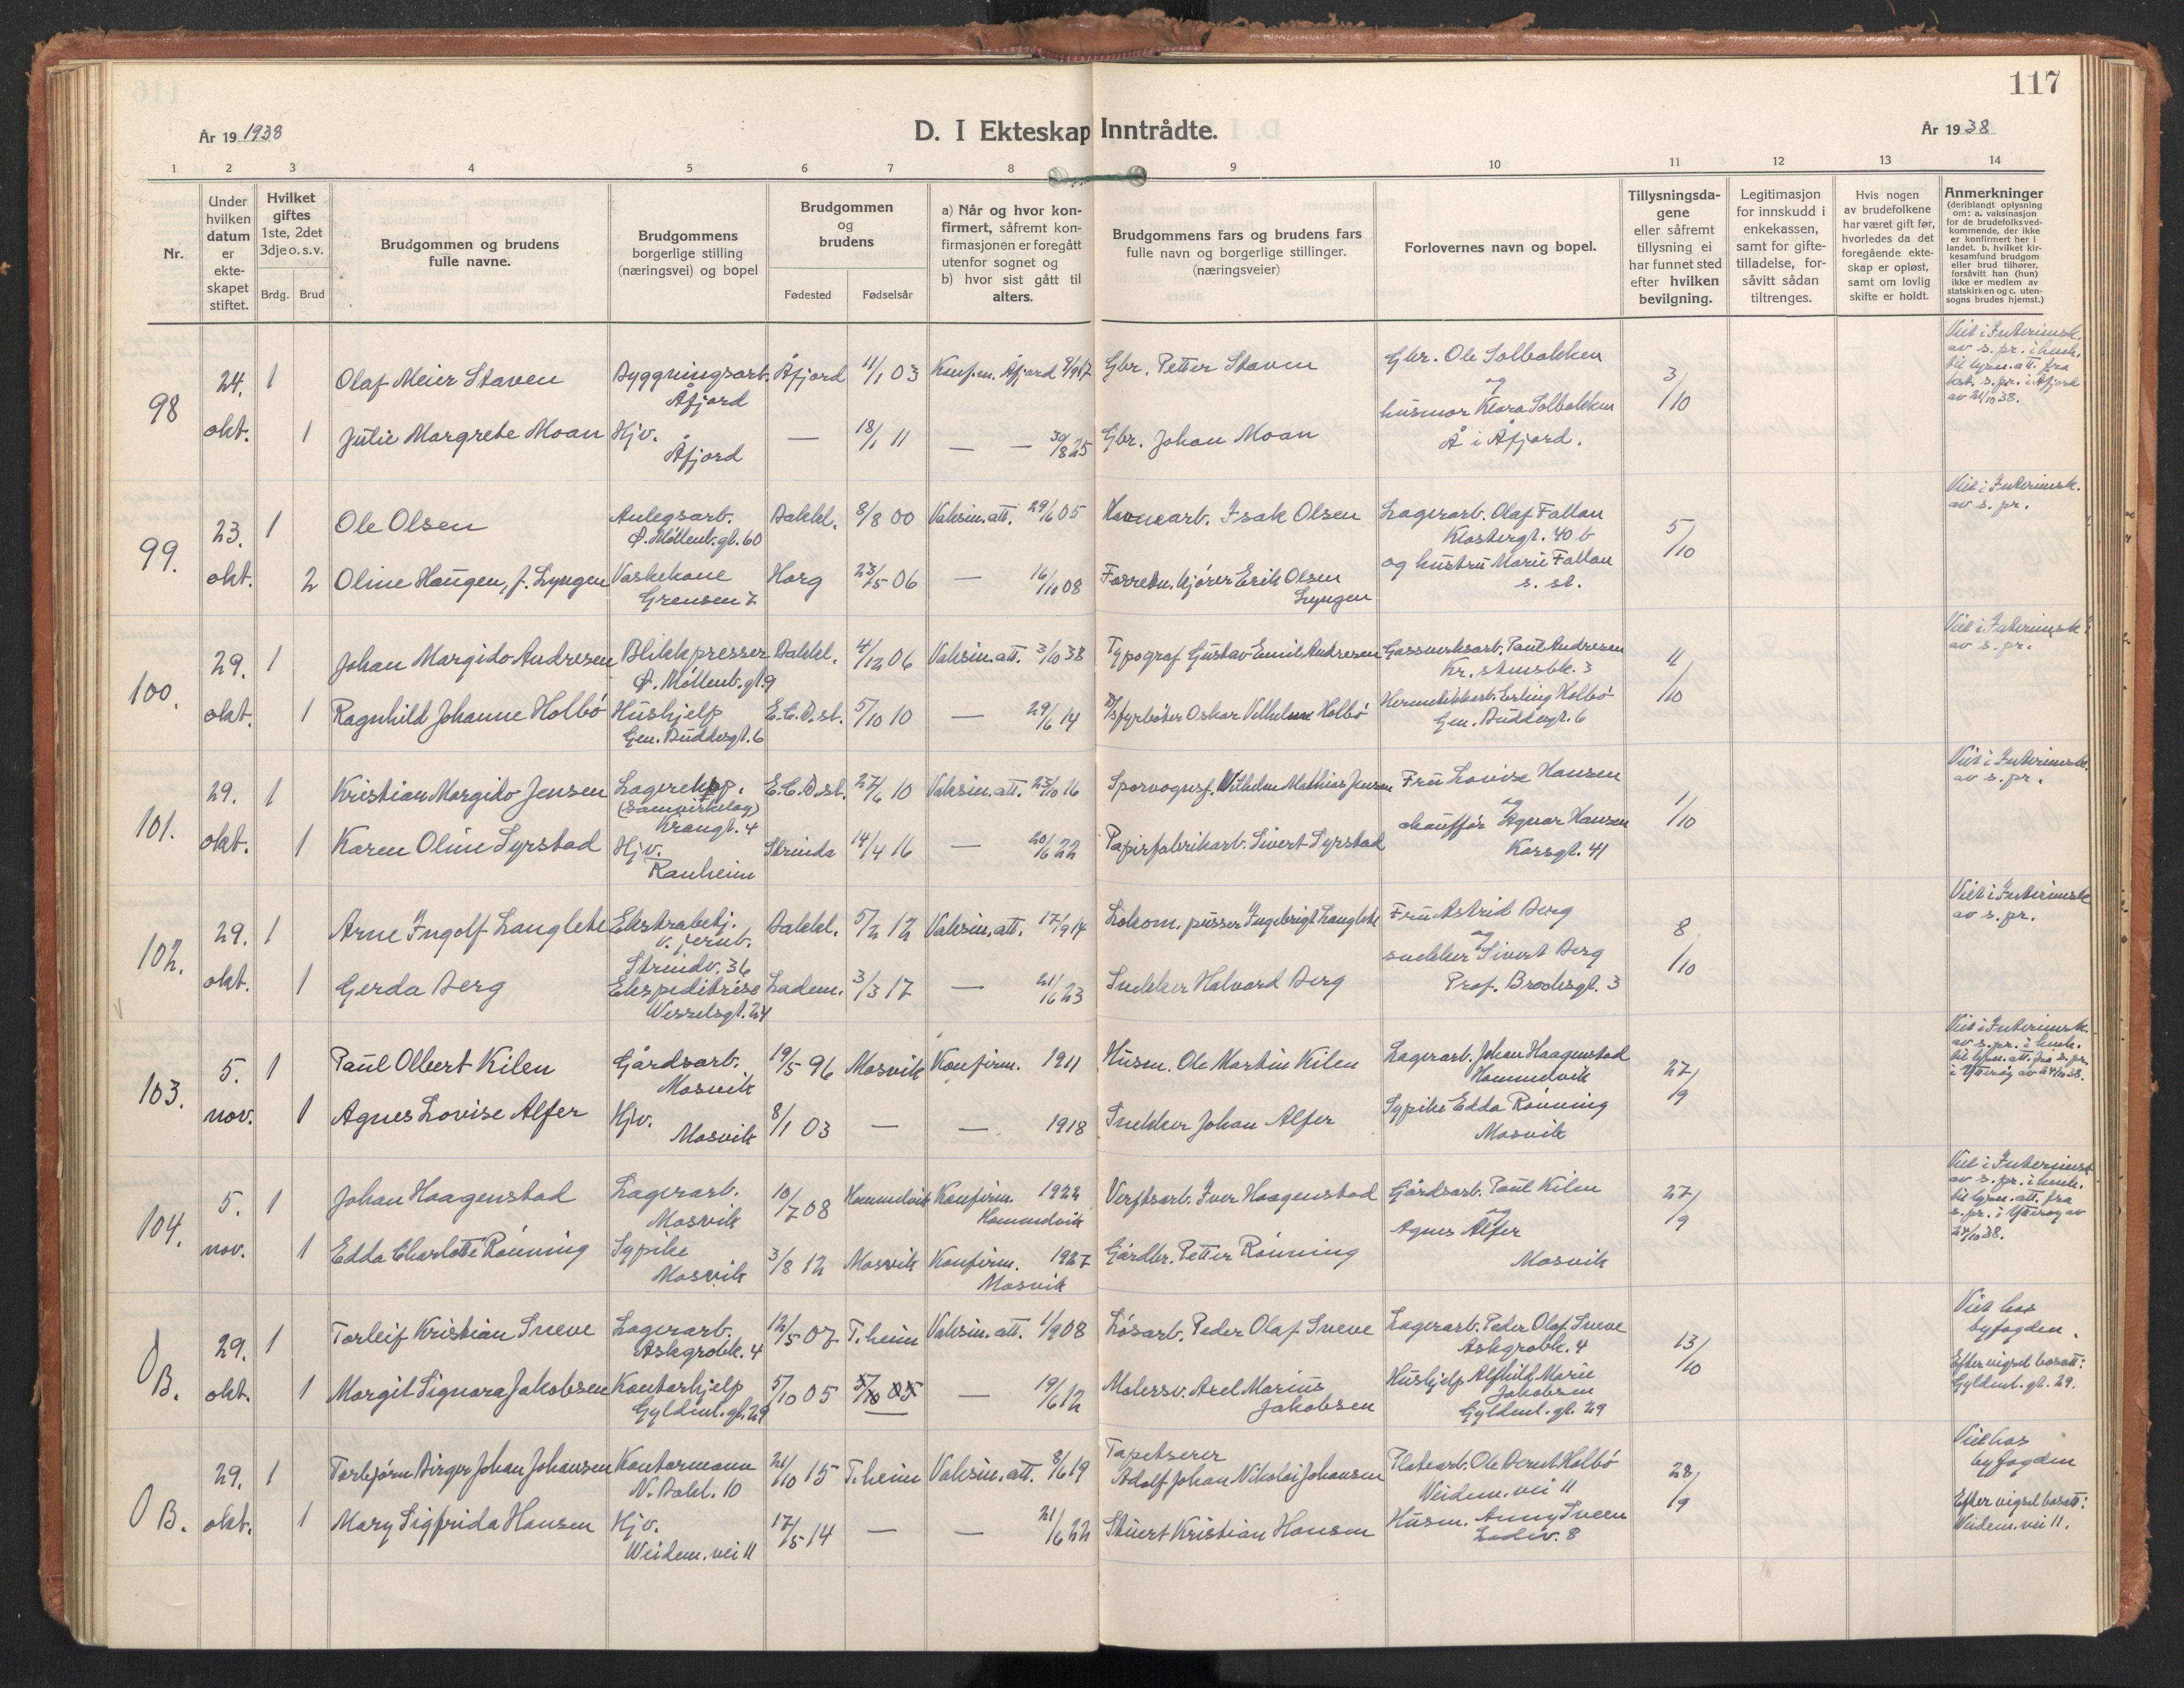 117
År 19 1938
D. I Ekteskap Inntrådte.
År 19 38
1 2 3 4 5 6 7 8 9 10 11 12 13 14
Nr.
Under hvilken datum er ekte- skapet stiftet.
Hvilket giftes 1ste, 2det 3dje o. s. v.
Brdg. Brud
Brudgommen og brudens fulle navne.
Brudgommens borgerlige stilling (næringsvei) og bopel
Brudgommen og brudens
Fødested Fødselsår
a) Når og hvor kon- firmert, såfremt kon- firmasjonen er foregått utenfor sognet og
b) hvor sist gått til alters.
Brudgommens fars og brudens fars fulle navn og borgerlige stillinger. (næringsveier)
Forlovernes navn og bopel.
Tillysningsda- gene eller såfremt tillysning ei har funnet sted efter hvilken bevilgning.
Legitimasjon for innskudd i enkekassen, samt for gifte- tilladelse, for- såvitt sådan tiltrenges.
Hvis nogen av brudefolkene har været gift før, hvorledes da det foregående ekte- skap er opløst, samt om lovlig skifte er holdt.
Anmerkninger (deriblandt oplysning om: a. vaksinasjon for de brudefolksved- kommende, der ikke er konfirmert her i landet. b. hvilket kir- kesamfund brudgom eller brud tilhører, forsåvitt han (hun) ikke er medlem av statskirken og c. uten- sogns brudes hjemst.)
98
24. okt.
1 Olaf Meier Staven Byggningsarb. Åfjord Åfjord 11/1 03 Konf. m. Åfjord 9/9 17 Gbr. Petter Staven
Gbr. Ole Solbakken og husmor Klara Solbakken Å i Åfjord.
3/10
Viet i Interimsk. av s. pr. i henh. til lysn. att. fra best. s. pr. i Åfjord av 21/10 38.
1 Julie Margrete Moan Hjv. Åfjord — 18/1 11 — — 30/8 25 Gbr. Johan Moan
99.
23. okt.
1 Ole Olsen Anlegsarb. Ø. Møllenb. gt. 60 Bakkl. 8/8 00 Vaksin. att. 29/6 05 Havnearb. Isak Olsen
Lagerarb. Olaf Fallan Klostergt. 40 b og hustru Marie Fallan s. st.
5/10
Viet i Interimsk. av s. pr.
2 Oline Haugen, f. Lyngen Vaskekone Grensen 7 Horg 23/5 06 — 16/10 08 Forretn. kjører Erik Olsen Lyngen
100.
29. okt.
1 Johan Margido Andresen Blikkpresser Ø. Møllenb. gt. 9 Bakkl. 4/12 06 Vaksin. att. 3/10 38 Typograf Gustav Emil Andresen
Gassverksarb. Paul Andresen Kr. stensbk. 3
4/10
Viet i Interimsk. av s. pr.
1 Ragnhild Johanne Holbø Hushjelp Gen. Buddesgt. 6 E. C. D. st. 5/10 10 — 29/6 14 D/S fyrbøter Oskar Vilhelm Holbø
Hermetikkarb. Erling Holbø Gen. Buddesgt. 6
101.
29. okt.
1 Kristian Margido Jensen Lagereksp. (Samvirkelag) Krangt. 4 E. C. D. st. 27/6 10 Vaksin. att. 23/10 16 Sporvognsf. Wilhelm Mathias Jensen
Fru Lovise Hansen og chauffør Agnar Hansen Korsgt. 41
1/10
Viet i Interimsk. av s. pr.
1 Karen Oline Syrstad Hjv. Ranheim Strinda 14/4 16 — 20/6 22 Papirfabrikarb. Sivert Syrstad
102.
29. okt.
1 Arne Ingolf Langlete Ekstrabetj. v. jernb. Strindv. 36 Bakkl. 5/2 12 Vaksin. att. 17/9 14 Lokom. pusser Ingebrigt Langlete
Fru Astrid Berg og snekker Sivert Berg Prof. Brochsgt. 3
8/10
Viet i Interimsk av s. pr.
1 Gerda Berg Ekspeditrise Wesselsgt. 24 Ladem. 3/3 17 — 21/6 23 Snekker Halvard Berg
103.
5. nov.
1 Paul Olbert Kilen Gårdsarb. Mosvik 19/5 96 Mosvik Konfirm. 1911 Husm. Ole Martin Kilen
Lagerarb. Johan Haagenstad Hommelvik
27/9
Viet i Interimsk. av s. pr. i henh. til lysn. att. fra s. pr. i Ytterøy av 24/10 38.
1 Agnes Lovise Alfer Hjv. Mosvik 8/1 03 — — 1918 Snekker Johan Alfer
Sypike Edda Rönning Mosvik
104.
5. nov.
1 Johan Haagenstad Lagerarb. Mosvik 10/7 08 Hommelvik Konfirm. 1922 Hommelvik Verftsarb. Iver Haagenstad
Gårdsarb. Paul Kilen og Agnes Alfer Mosvik
27/9
Viet i Interimsk av s. pr. i henh. til lysn. att. fra s. pr. i Ytterøy av 24/10 38.
1 Edda Charlotte Rönning Sypike Mosvik 3/8 12 Mosvik Konfirm. 1927 Mosvik Gårdbr. Petter Rönning
B.
29. okt.
1 Torleif Kristian Sneve Lagerarb. Askgrobk. 4 12/5 07 T.heim Vaksin. att. 1/9 08 Løsarb. Peder Olaf Sneve
Lagerarb. Peder Olaf Sneve Askgrobk. 4
13/10
Viet hos byfogden. Efter vigsel bosatt: Gyldenl. gt. 29.
1 Margit Signora Jakobsen Kontorhjelp Gyldenl. gt. 29 5/10 05 5/10 05 — 19/6 12 Malersv. Axel Marius Jakobsen
Hushjelp Alfhild Marie Jakobsen Gyldenl. gt. 29
B.
29. okt.
1 Torbjørn Birger Johan Johansen Kontormann N. Bakl. 10 21/10 15 T.heim Vaksin. att. 8/6 19 Tapetserer Adolf Johan Nikolai Johansen
Platearb. Ole Bernt Holbø Weidem. vei 11
28/9
Viet hos byfogden Efter vigsel bosatt: Weidem. vei 11.
1 Mary Sigfrida Hansen Hjv. Weidem. vei 11 17/5 14 — — 21/6 22 Stuert Kristian Hansen
Husm. Anny Sveen 8